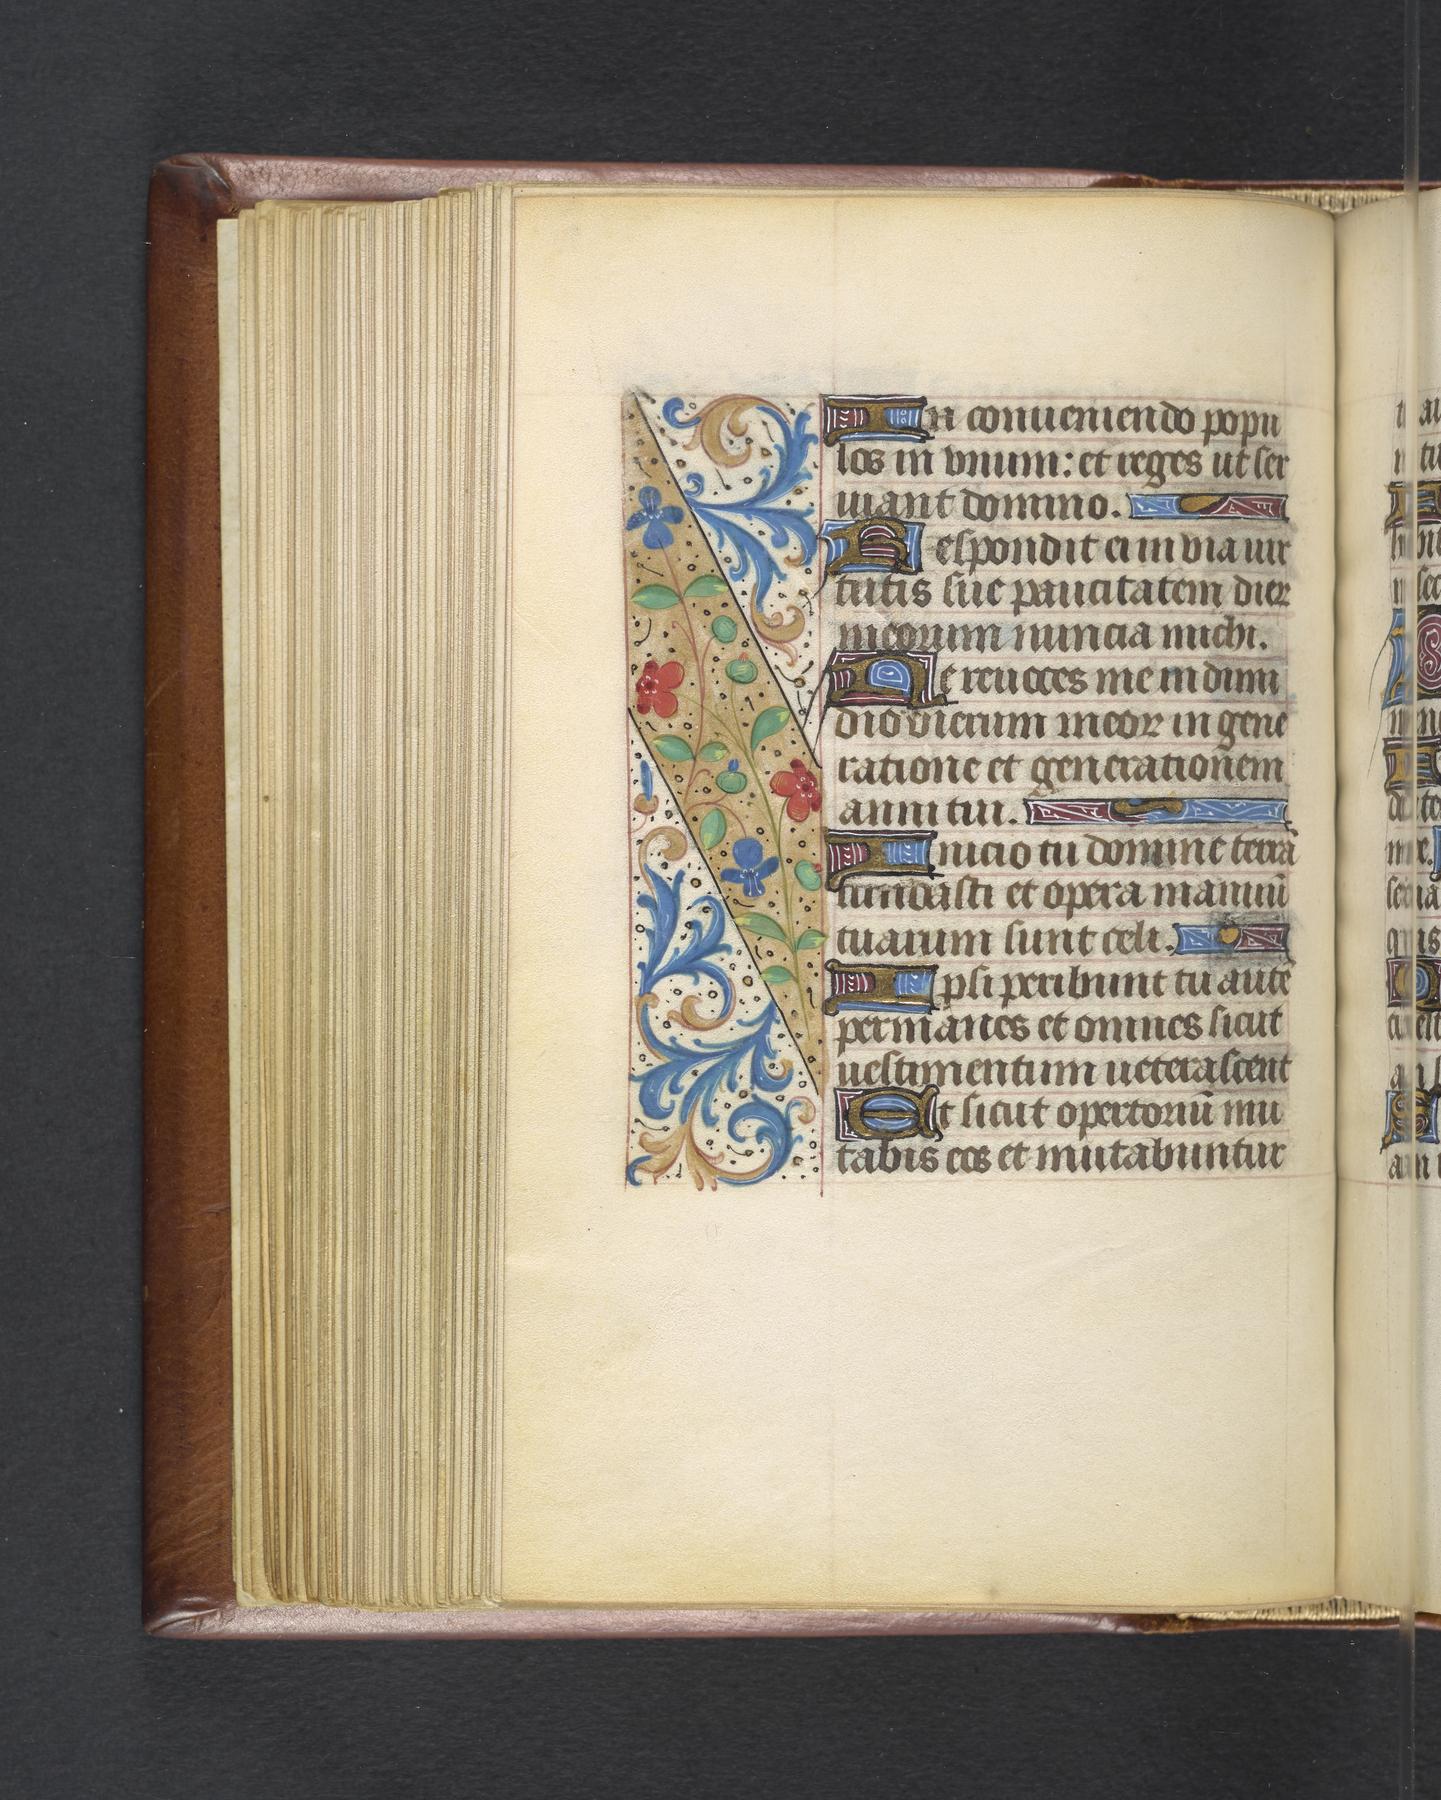 In conueniendo popu
los in vnum: et reges ut ser
uiant domino.
Respondit ei in via uir
tutis sue paucitatem dieꝝ
meorum nuncia michi.
Ne reuoces me in dimi
dio dierum meoꝝ in gene
ratione et generationem
anni tui.
Inicio tu domine terrā
fundasti et opera manuū
tuarum sunt celi.
Ipsi peribunt tu autē
permanes et omnes sicut
uestimentum ueterascent
Et sicut opertoriū mu
tabis eos et mutabuntur